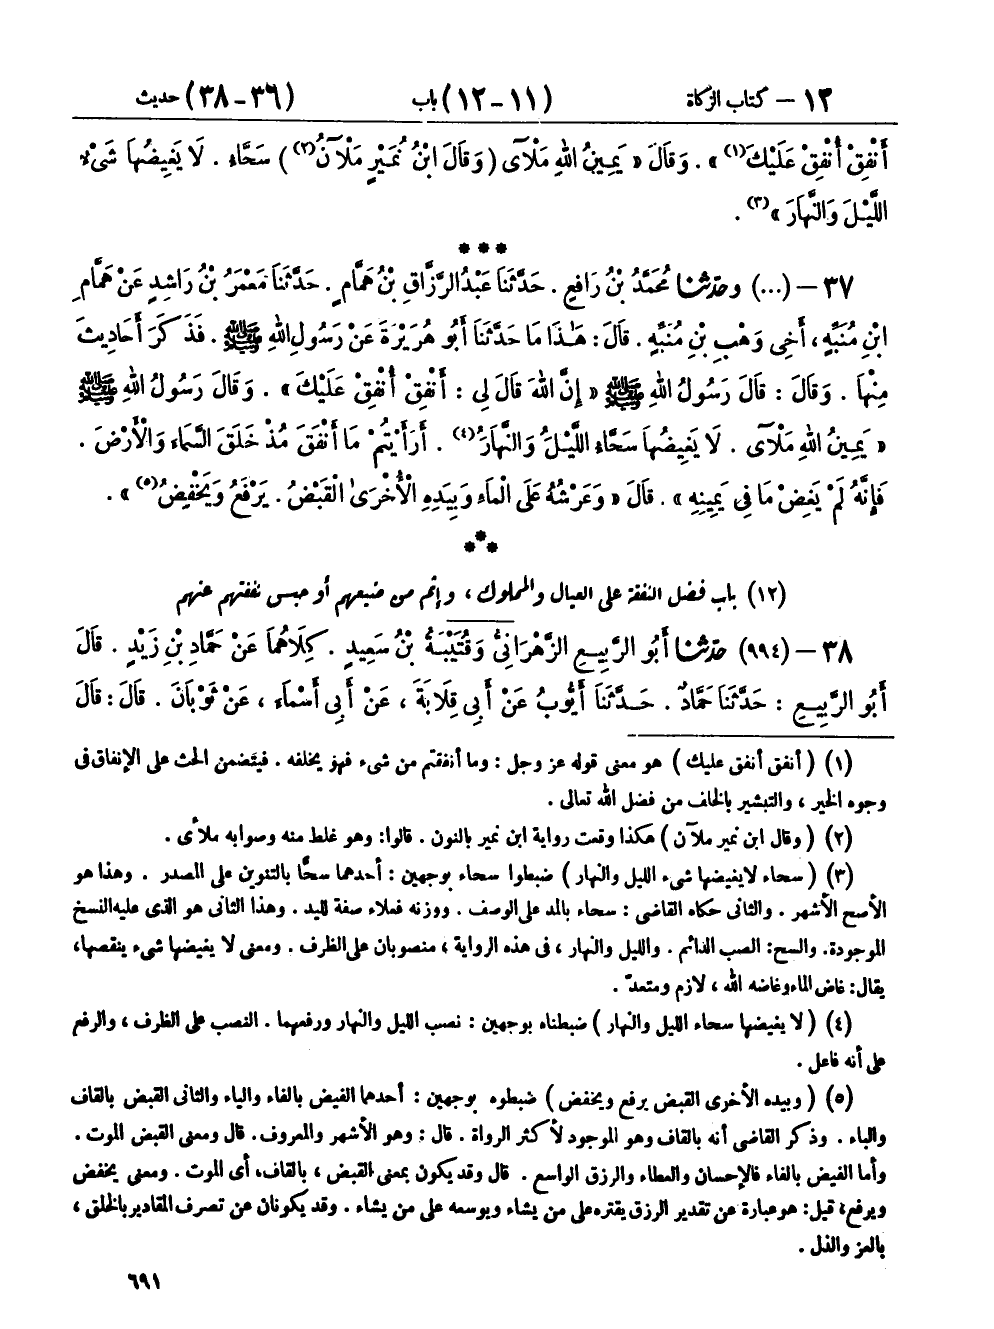 ١٢ – كتاب الزكاة (١١-١٢) باب (٣٦-٣٨) حديث
أَنْفِقْ أُنْفِقْ عَلَيْكَ(١) » . وَقَالَ « يَمِينُ اللهِ مَلْآى ( وَقَالَ ابْنُ نُمَيْرٍ مَلْآنُ(٢) ) سَحَّاءِ . لَا يَغِيضُهَا شَىْءٌ
اللَّيْلَ وَالنَّهَارَ »(٣) .
***
٣٧ – (...) وحدّثنا مُحَمَّدُ بْنُ رَافِعٍ . حَدَّثَنَا عَبْدُ الرَّزَّاقِ بْنُ هَمَّامٍ . حَدَّثَنَا مَعْمَرُ بْنُ رَاشِدٍ عَنْ هَمَّامِ
ابْنِ مُنَبِّهٍ ، أَخِى وَهْبِ بْنِ مُنَبِّهٍ . قَالَ : هٰذَا مَا حَدَّثَنَا أَبُو هُرَيْرَةَ عَنْ رَسُولِ اللهِ ﷺ . فَذَكَرَ أَحَادِيثَ
مِنْهَا . وَقَالَ : قَالَ رَسُولُ اللهِ ﷺ « إِنَّ اللهَ قَالَ لِى : أَنْفِقْ أُنْفِقْ عَلَيْكَ » . وَقَالَ رَسُولُ اللهِ ﷺ
« يَمِينُ اللهِ مَلْآى . لَا يَغِيضُهَا سَحَّاءِ اللَّيْلُ وَالنَّهَارُ(٤) . أَرَأَيْتُمْ مَا أَنْفَقَ مُذْ خَلَقَ السَّمَاءَ وَالْأَرْضَ .
فَإِنَّهُ لَمْ يَغِضْ مَا فِى يَمِينِهِ » . قَالَ « وَعَرْشُهُ عَلَى الْمَاءِ وَبِيَدِهِ الْأُخْرَىٰ الْقَبْضُ . يَرْفَعُ وَيَخْفِضُ(٥) » .
***
(١٢) باب فضل النفقة على العيال والمملوك ، وإثم من ضيعهم أو حبس نفقتهم عنهم
٣٨ – (٩٩٤) حدّثنا أَبُو الرَّبِيعِ الزَّهْرَانِىُّ وَقُتَيْبَةُ بْنُ سَعِيدٍ . كِلَاهُمَا عَنْ حَمَّادِ بْنِ زَيْدٍ . قَالَ
أَبُو الرَّبِيعِ : حَدَّثَنَا حَمَّادٌ . حَدَّثَنَا أَيُّوبُ عَنْ أَبِى قِلَابَةَ ، عَنْ أَبِى أَسْمَاءَ ، عَنْ ثَوْبَانَ . قَالَ : قَالَ
(١) ( أنفق أنفق عليك ) هو معنى قوله عز وجل : وما أنفقتم من شىء فهو يخلفه . فيتضمن الحث على الإنفاق فى
وجوه الخير ، والتبشير بالخلف من فضل الله تعالى .
(٢) ( وقال ابن نمير ملآن ) هكذا وقعت رواية ابن نمير بالنون . قالوا: وهو غلط منه وصوابه ملأى .
(٣) ( سحاء لايغيضها شىء الليل والنهار ) ضبطوا سحاء بوجهين : أحدهما سحًّا بالتنوين على المصدر . وهذا هو
الأصح الأشهر . والثانى حكاه القاضى : سحاء بالمد على الوصف . ووزنه فعلاء صفة لليد . وهذا الثانى هو الذى عليه النسخ
الموجودة. والسح: الصب الدائم . والليل والنهار ، فى هذه الرواية ، منصوبان على الظرف . ومعنى لا يغيضها شىء ينقصها،
يقال: غاض الماء وغاضه الله ، لازم ومتعدّ .
(٤) ( لا يغيضها سحاء الليل والنهار ) ضبطناه بوجهين : نصب الليل والنهار ورفعهما . النصب على الظرف ، والرفع
على أنه فاعل .
(٥) ( وبيده الأخرى القبض يرفع ويخفض ) ضبطوه بوجهين : أحدهما الفيض بالفاء والياء والثانى القبض بالقاف
والباء . وذكر القاضى أنه بالقاف وهو الموجود لأكثر الرواة . قال : وهو الأشهر والمعروف. قال ومعنى القبض الموت .
وأما الفيض بالفاء فالإحسان والعطاء والرزق الواسع . قال وقد يكون بمعنى القبض ، بالقاف، أى الموت . ومعنى يخفض
ويرفع، قيل: هو عبارة عن تقدير الرزق يقتره على من يشاء ويوسعه على من يشاء . وقد يكونان عن تصرف المقادير بالخلق ،
بالعز والذل .
٦٩١